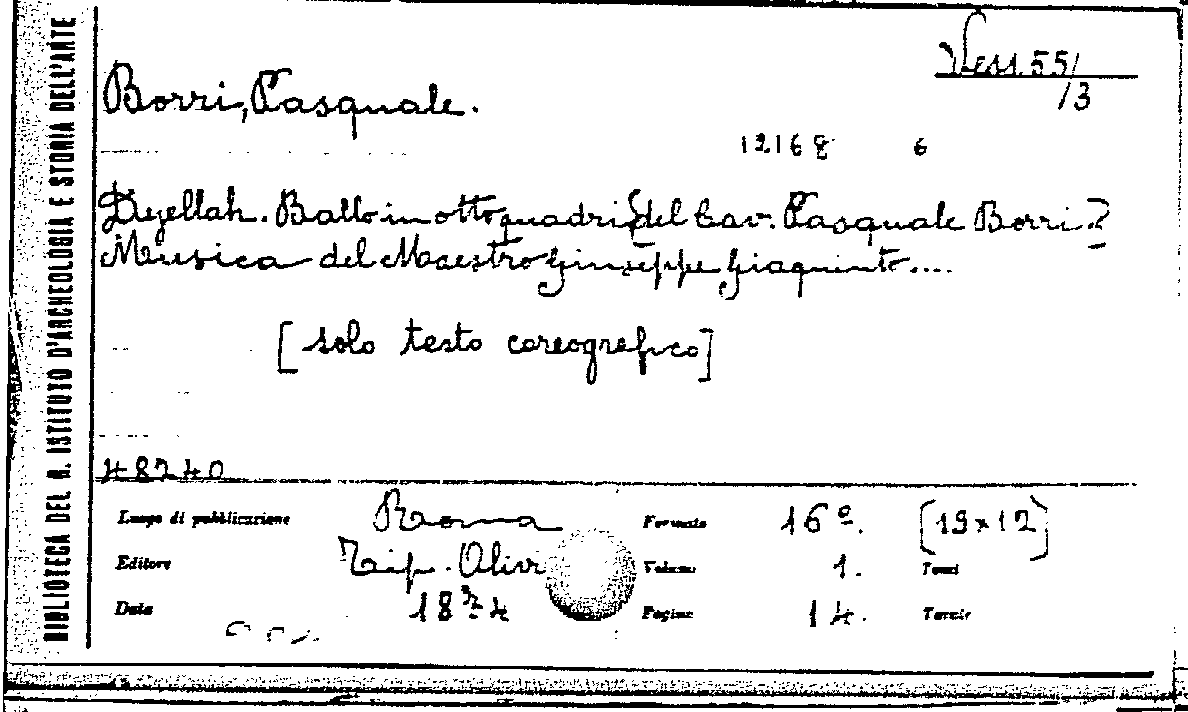 BIBLIOTECA DEL R. ISTITUTO D'ARCHEOLOGIA E STORIA DELL'ARTE
Vess. 55/
/3
Borri, Pasquale.
12168 6
Dyellah. Ballo in otto quadri del Cav. Pasquale Borri?
Musica del Maestro Giuseppe Giaquinto....
[solo testo coreografico]
48240
Luogo di pubblicazione Roma Formato 16º. [19×12]
Editore Tip. Olivi Volume 1. Tomi
Data 1874 Pagine 14. Tavole